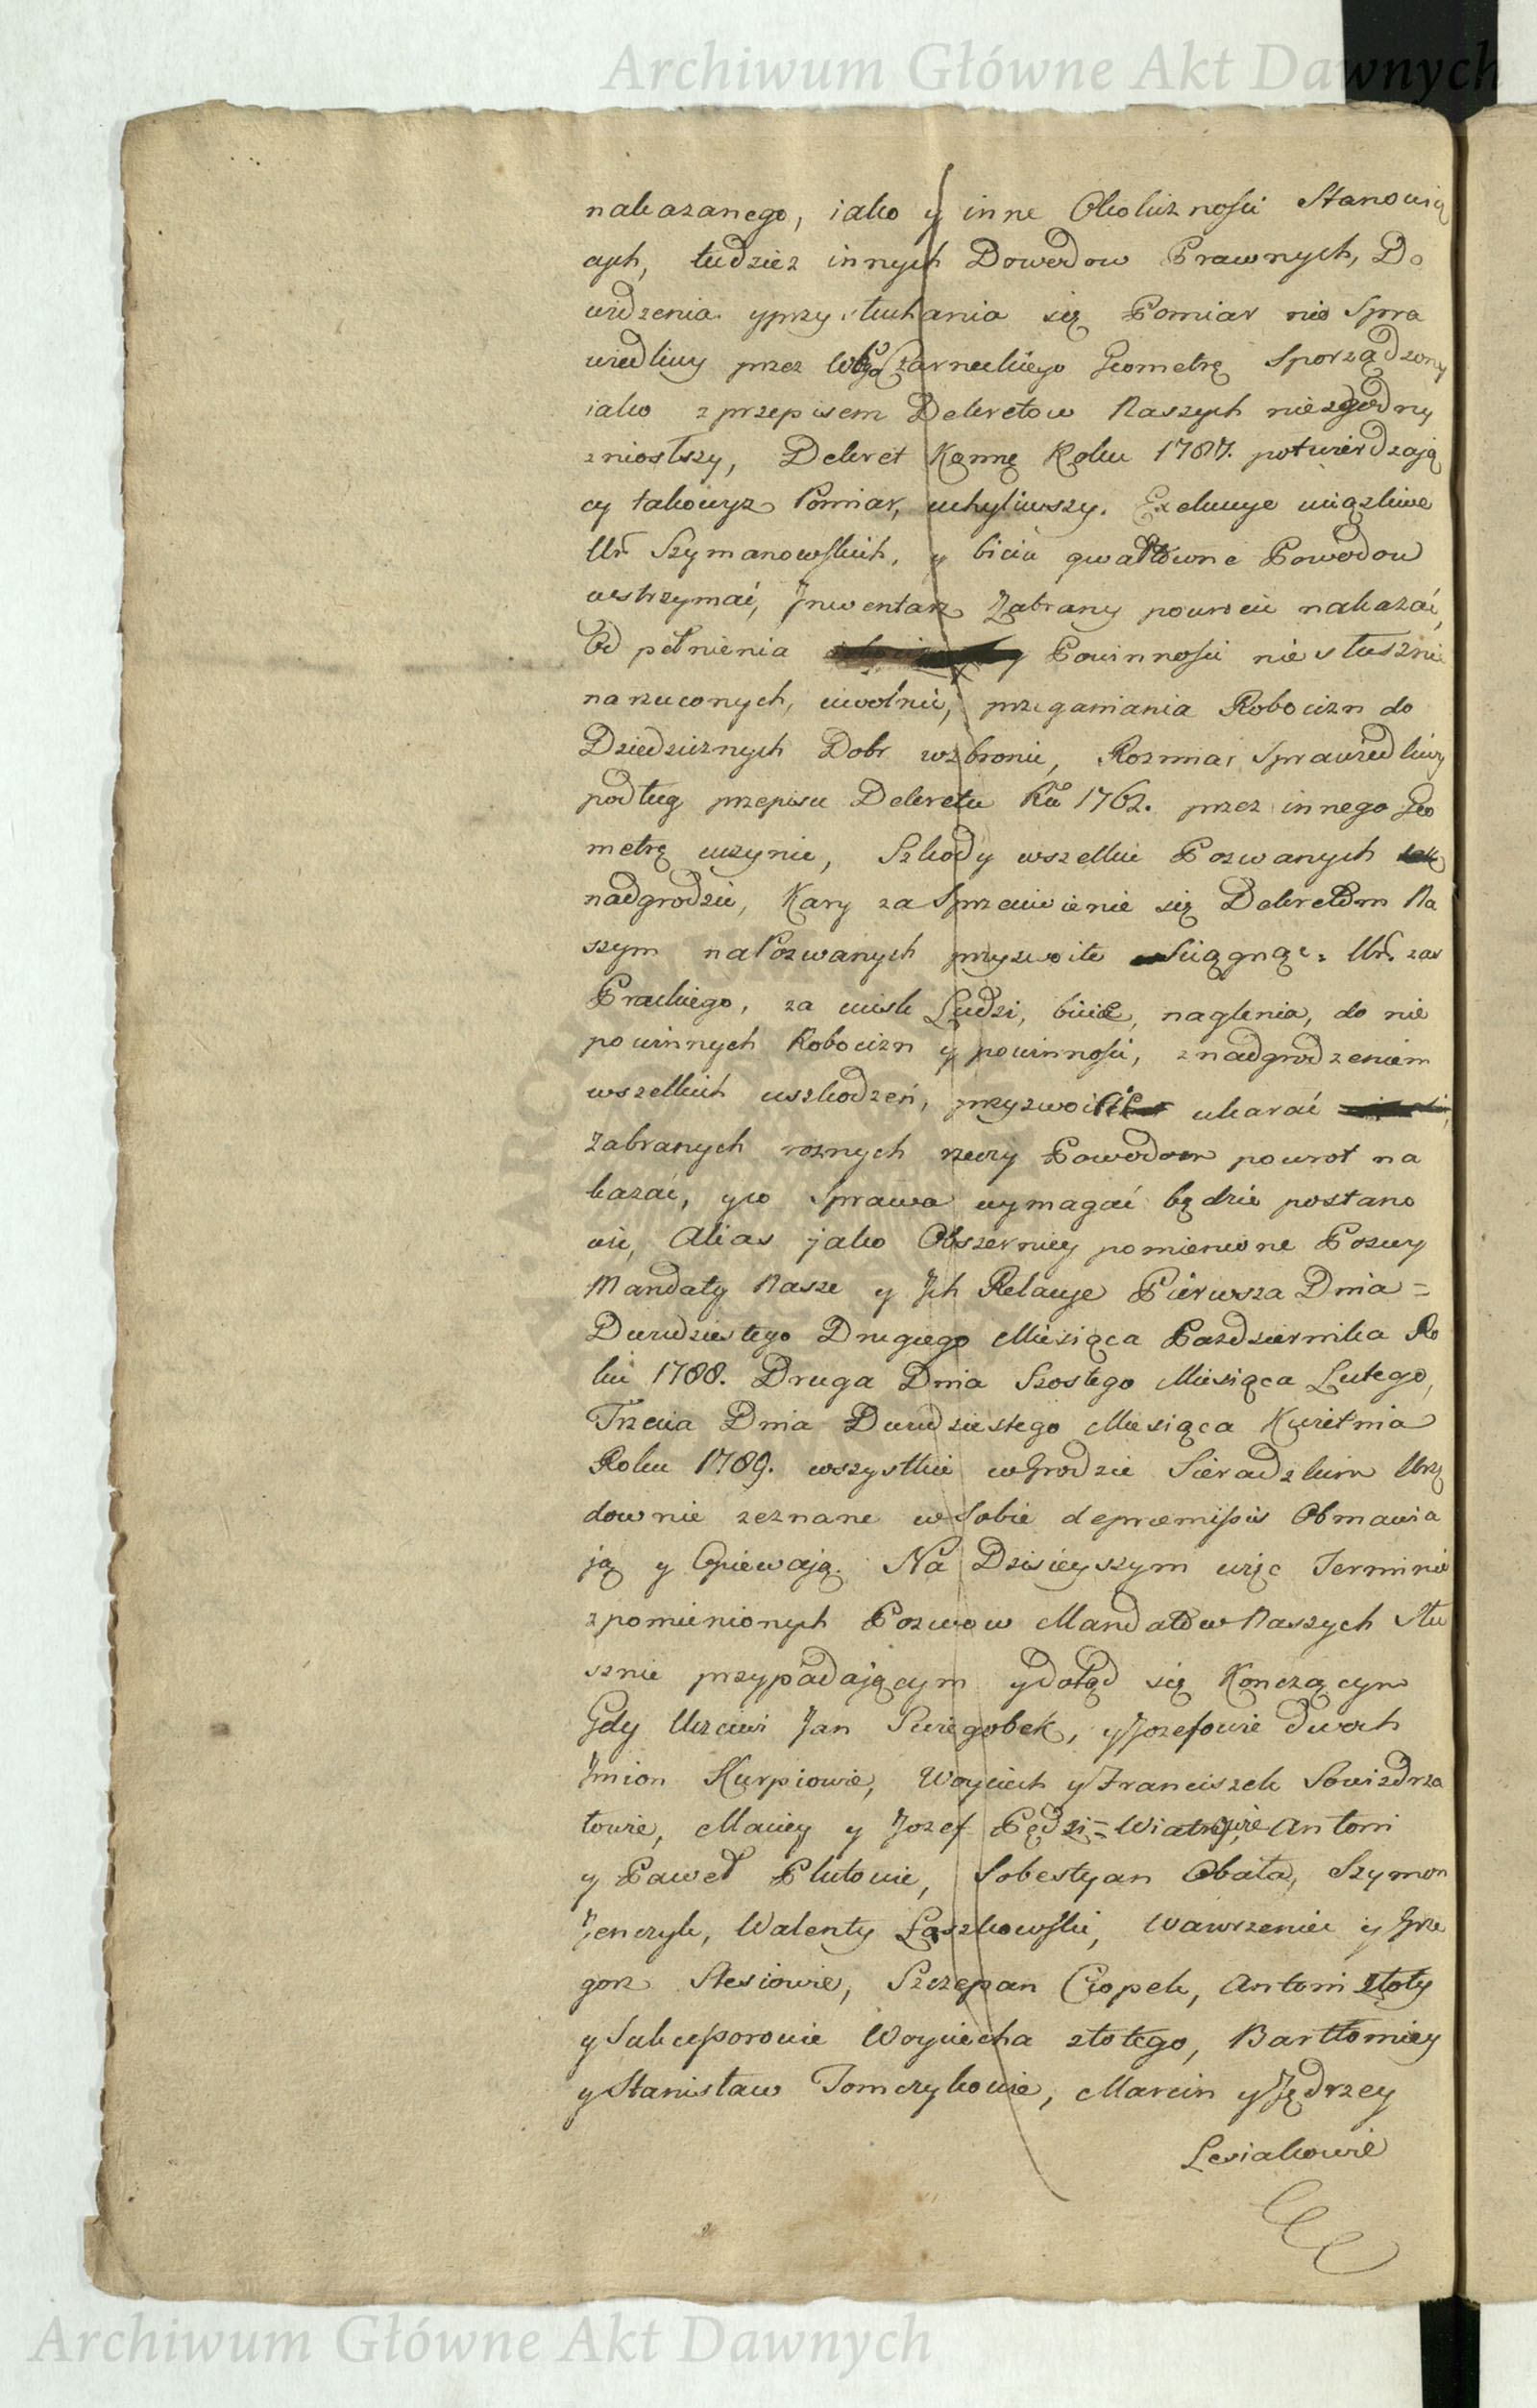 Archiwum Główne Akt Dawnych
nakazanego, iako y inne Okolicznosci Stanowią
cych, tudziez innych Dowodow Prawnych, Do
widzenia y przysłuchania się Pomiar nie Spra
wiedliwy przez Czarneckiego Geometrę Sporządzony
iako z przepisem Dekretow Naszych niezgodny
zniosłszy, Dekret Roku 1787. potwierdzają
cy takowyz Pomiar, uchyliwszy. Exekucye uciązliwe
Ur. Szymanowskich, y bicia gwałtowne Powodow
wstrzymać, Jnwentarz Zabrany powrocić nakazać,
Od pełnienia Powinnosci niesłusznie
narzuconych, uwolnić, przeganiania Robocizn do
Dziedzicznych Dobr wzbronić, Rozmiar Sprawiedliwy
podług przepisu Dekretu Ru 1762. przez innego Geo
metrę uczynić, Szkody wszelkie Pozwanych
nadgrodzić, Kary za Sprzeciwienie się Dekretom Na
szym na Pozwanych przyzwoite Sciągnąć. Ur. zas
Prackiego, za ucisk Ludzi, bicie, naglenia, do nie
powinnych Robocizn y powinnosci, z nadgrodzeniem
wszelkich uszkodzeń, ukarać
Zabranych roznych rzeczy Powodom powrot na
kazać, y co Sprawa wymagać będzie postano
wić, Alias jako Obszerniey pomienione Pozwy
Mandaty Nasze y Jch Relacye Pierwsza Dnia =
Dwudziestego Drugiego Miesiąca Pazdziernika Ro
ku 1788. Druga Dnia Szostego Miesiąca Lutego,
Trzecia Dnia Dwudziestego Miesiąca Kwietnia
Roku 1789. wszystkie w Grodzie Sieradzkim Urzę
downie zeznane w Sobie de præmissis Obmawia
ją y Opiewają. Na Dzisieyszym więc Terminie
z pomienionych Pozwow Mandatow Naszych Słu
sznie przypadającym y dotąd się Konczącym
Gdy Uczciwi Jan Swiegobek, y Jozefowie dwoch
Jmion Kurpiowie, Woyciech y Franciszek Sowizdrza
łowie, Maciey y Jozef Pędzi = Wiatrowie, Antoni
y Paweł Plutowie, Sobestyan Obała, Szymon
Jenczyk, Walenty Laszkowski, Wawrzeniec y Grze
gorz Stesiowie, Szczepan Czopek, Antoni złoty
y Sukcessorowie Woyciecha złotego, Bartłomiey
y Stanisław Tomczykowie, Marcin y Jędrzey
Lesiakowie
Archiwum Główne Akt Dawnych